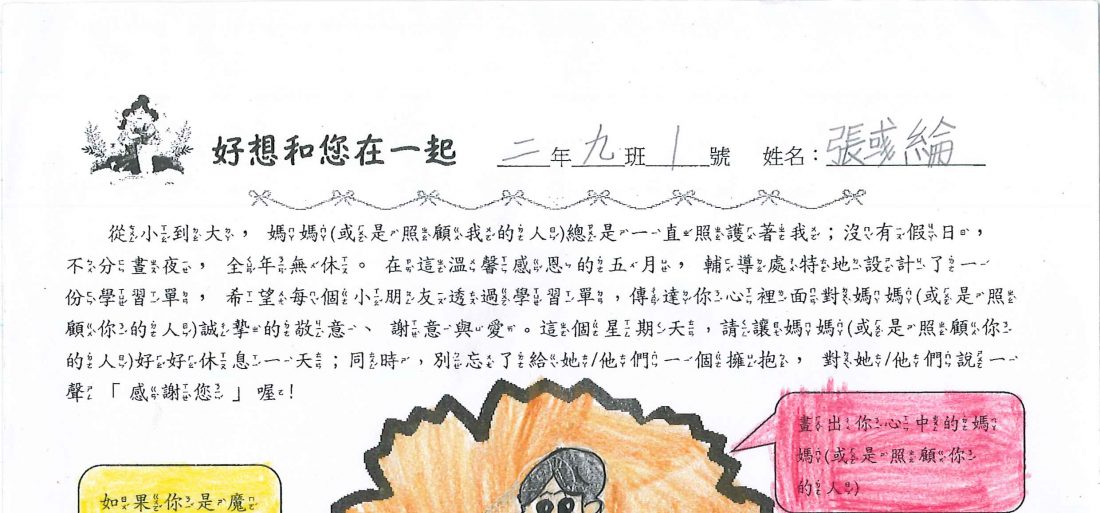 好想和您在一起 二年九班1號 姓名：張彧綸
從小到大，媽媽(或是照顧我的人)總是一直照護著我；沒有假日，
不分晝夜，全年無休。在這溫馨感恩的五月，輔導處特地設計了一
份學習單，希望每個小朋友透過學習單，傳達你心裡面對媽媽(或是照
顧你的人)誠摯的敬意、謝意與愛。這個星期天，請讓媽媽(或是照顧你
的人)好好休息一天；同時，別忘了給她/他們一個擁抱，對她/他們說一
聲「感謝您」喔！
畫出你心中的媽
媽(或是照顧你
的人)
如果你是魔